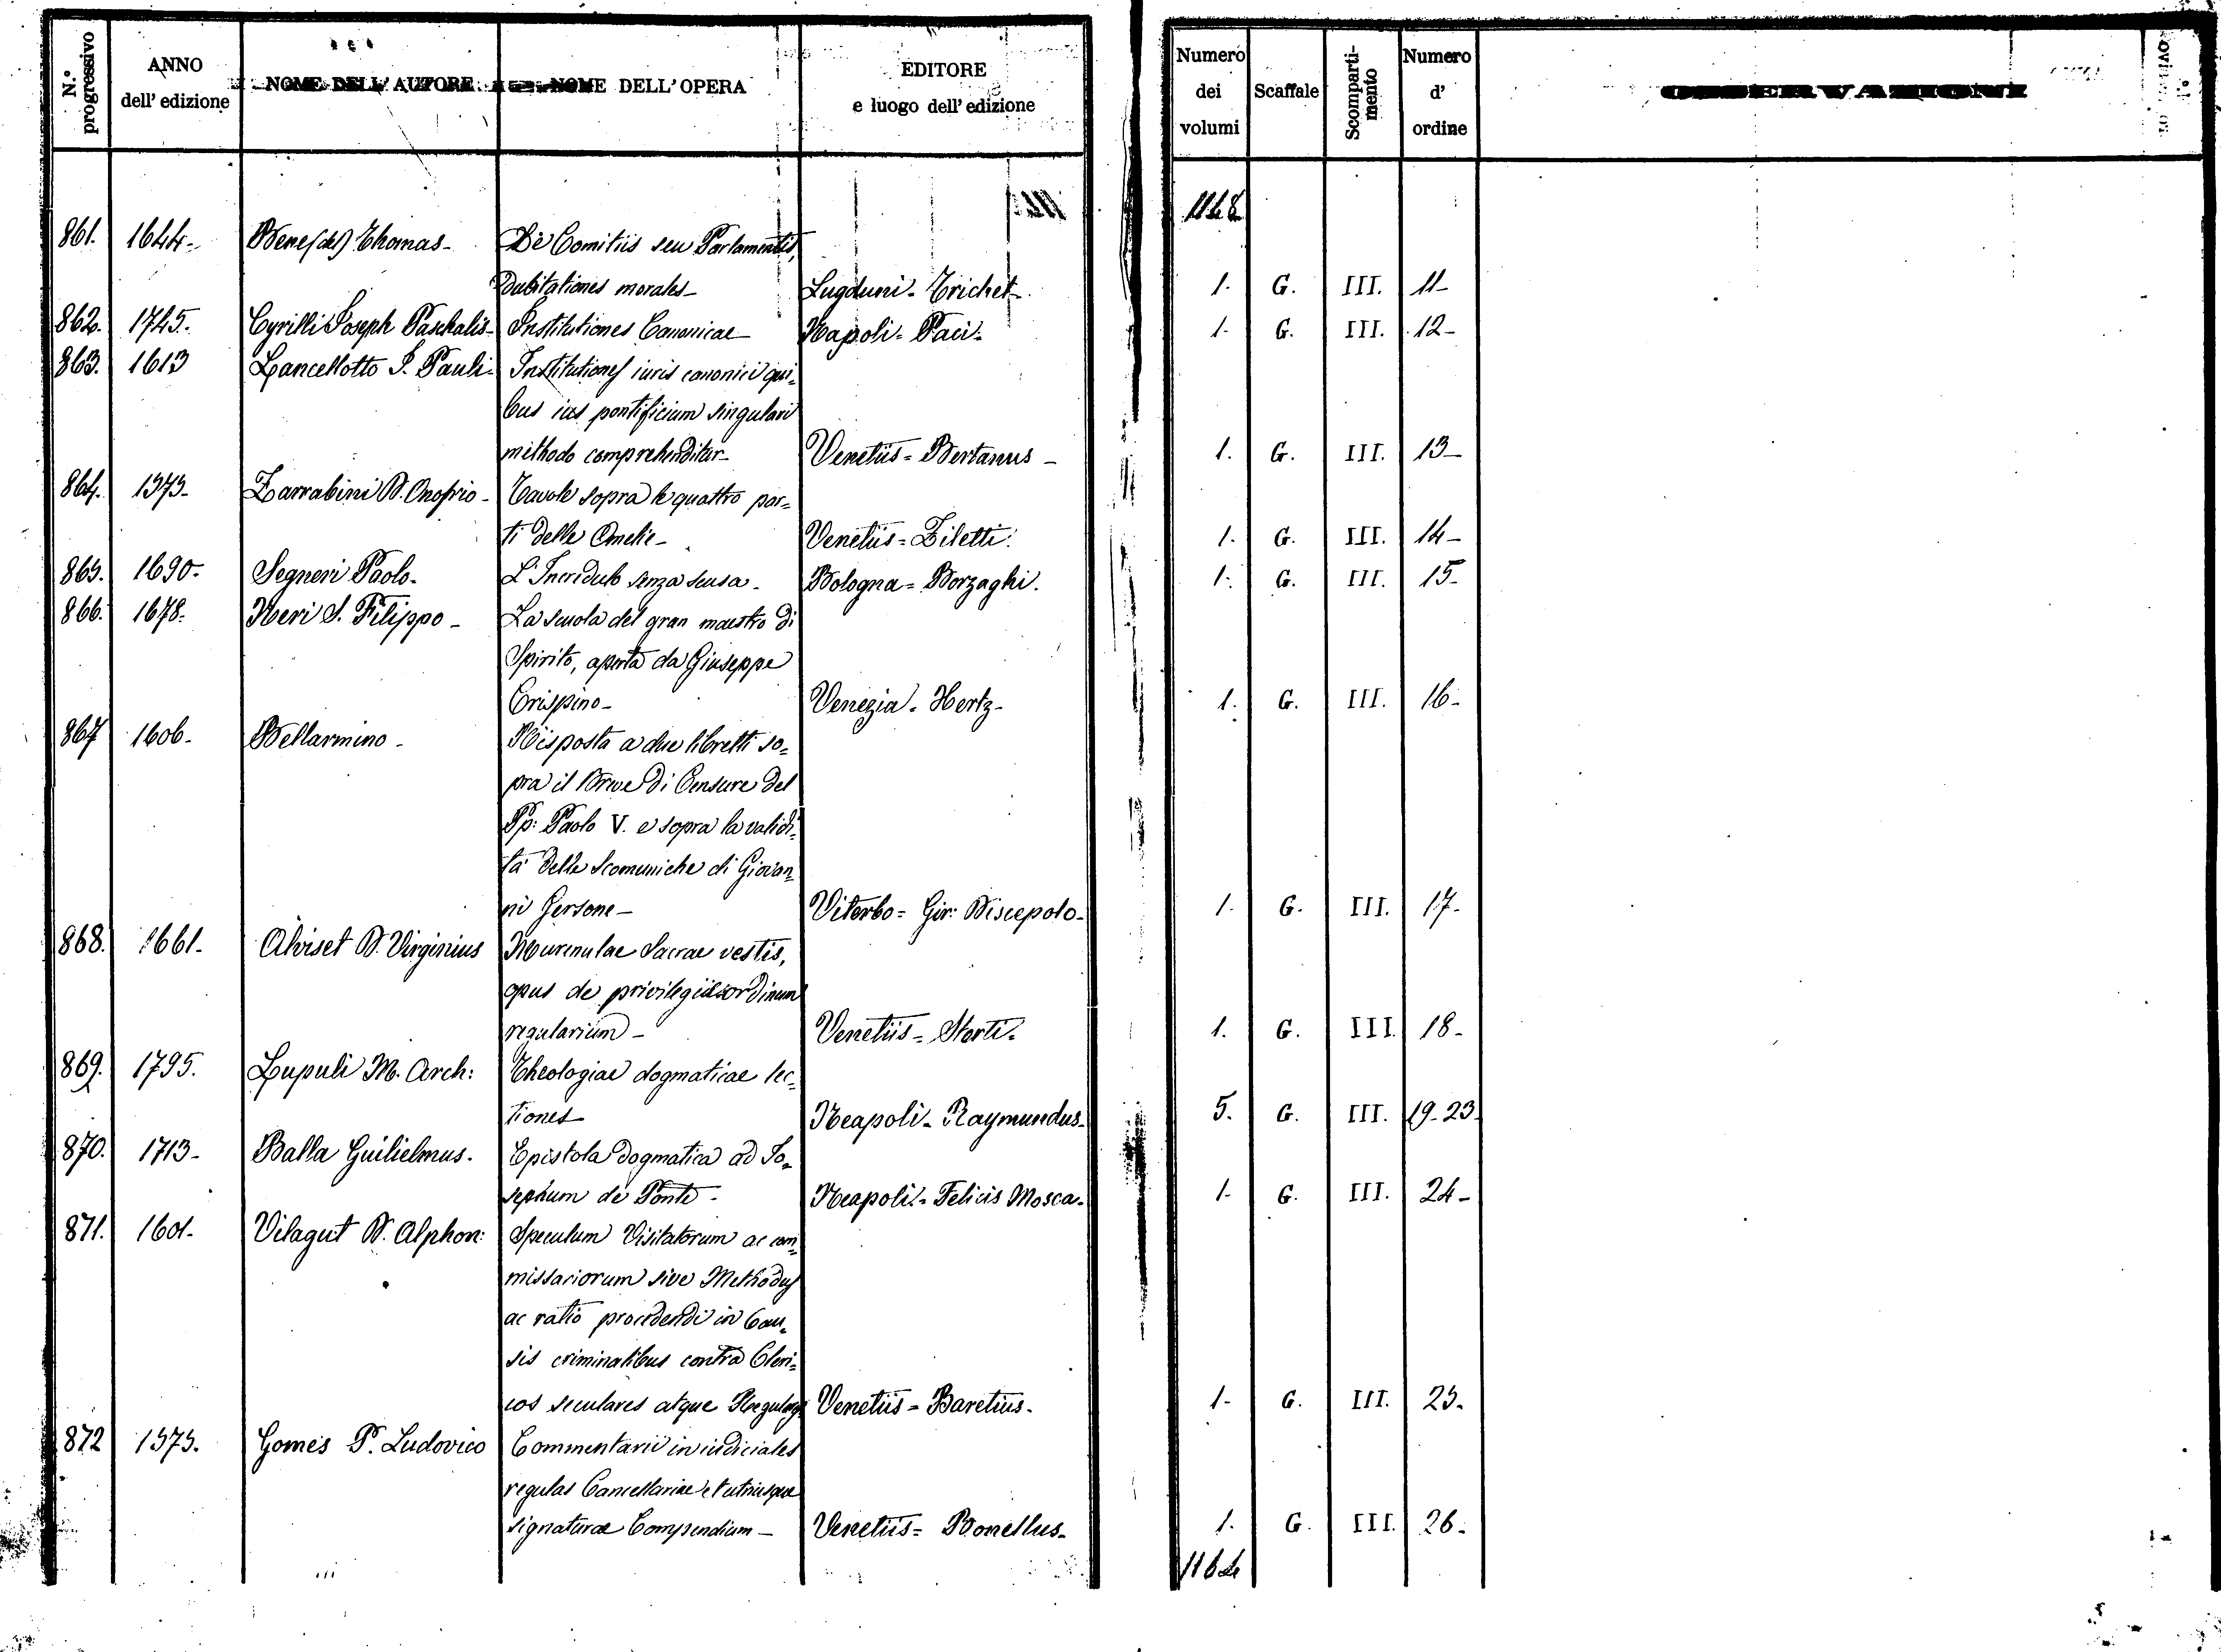 N.º progressivo
ANNO dell' edizione
NOME DELL' AUTORE
NOME DELL' OPERA
EDITORE e luogo dell' edizione
Numero dei volumi
Scaffale
Scomparti-mento
Numero d' ordine
OSSERVAZIONI
1148
861. 1644. Bene (del) Thomas - De Comitiis seu Parlamentis,
Dubitationes morales - Lugduni - Trichet - 1. G. III. 11-
862. 1745. Cyrilli Joseph Paschalis - Institutiones Canonicae - Napoli - Paci. 1. G. III. 12-
863. 1613 Lancellotto I. Pauli - Institutiones iuris canonici qui=
bus ius pontificium singulari
methodo comprehenditur - Venetiis = Bertanus - 1. G. III. 13-
864. 1573- Zarrabini D. Onofrio - Tavole sopra le quattro par=
ti delle Omelie - Venetiis = Ziletti. 1. G. III. 14-
865. 1690. Segneri Paolo. L'Incredulo senza scusa. Bologna = Borzaghi. 1. G. III. 15-
866. 1678. Neri S. Filippo - La scuola del gran maestro di
Spirito, aperta da Giuseppe
Crispino - Venezia - Hertz - 1. G. III. 16-
867 1606. Bellarmino - Risposta a due libretti so=
pra il Breve di Censure del
Pp: Paolo V. e sopra la validi=
tà delle Scomuniche di Giovan=
ni Gersone - Viterbo = Gir: Discepolo. 1. G. III. 17-
868. 1661. Alviset D. Virginius Murenulae Sacrae vestis,
opus de privilegiis ordinum
regularium - Venetiis = Storti. 1. G. III. 18-
869. 1795. Lupuli M. Arch: Theologiae dogmaticae lec=
tiones Neapoli - Raymundus. 5. G. III. 19-23
870. 1713- Balla Guilielmus. Epistola dogmatica ad Jo=
sephum de Ponte - Neapoli - Felicis Mosca. 1. G. III. 24-
871. 1601. Vilagut D. Alphon: Speculum Visitatorum ac com=
missariorum sive Methodus
ac ratio procedendi in Cau=
sis criminalibus contra Cleri=
cos seculares atque Regulares Venetiis = Baretius. 1. G. III. 25.
872 1575. Gomes P. Ludovico Commentarii in iudiciales
regulas Cancellariae et utriusque
signaturae Compendium - Venetiis = Bonellus. 1. G. III. 26.
1164